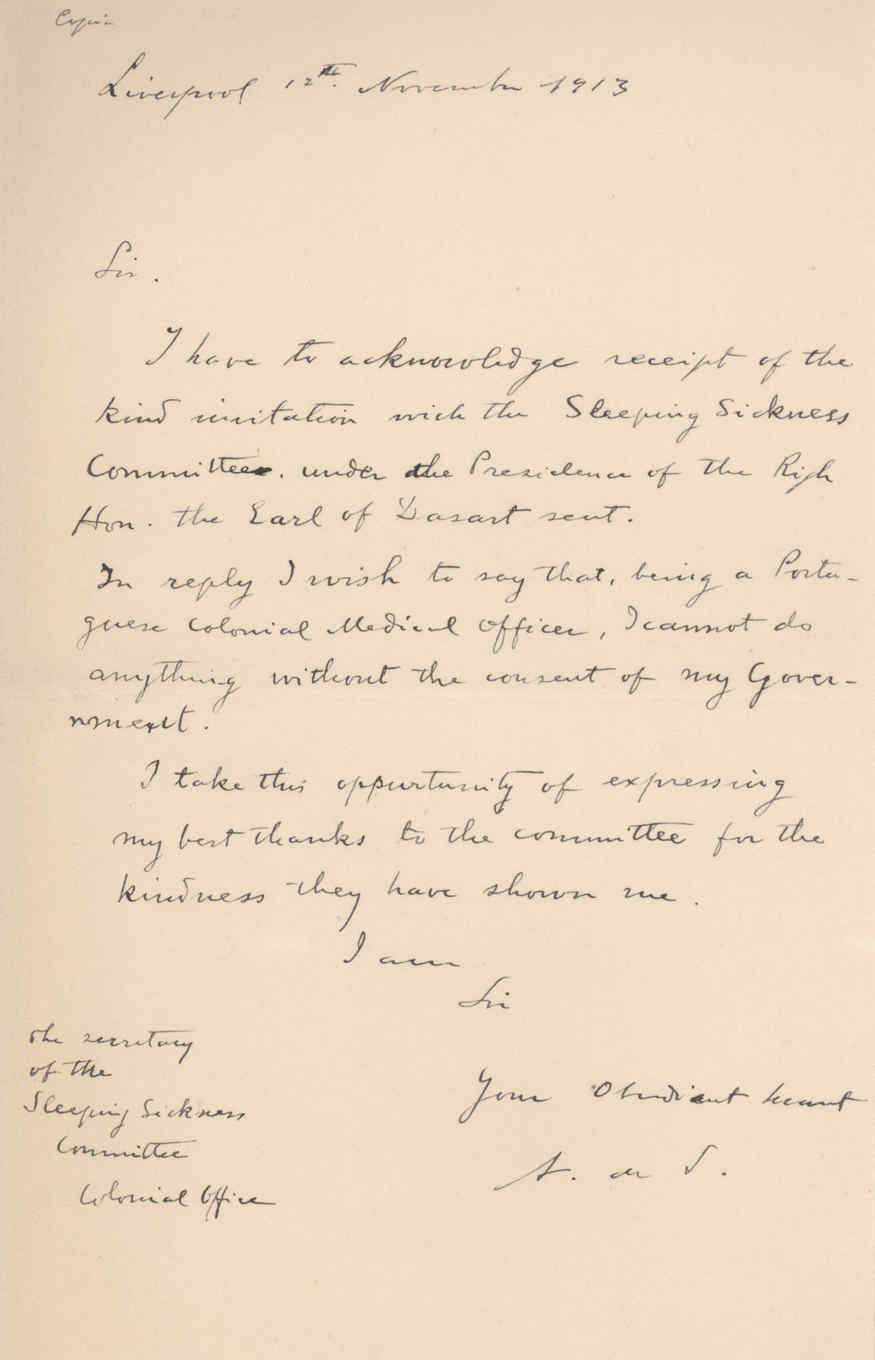 Copia
Liverpool 12th. November 1913
Sir.
I have to acknowledge receipt of the
kind invitation wich the Sleeping Sickness
Committee. under the Presidence of the Righ
Hon. the Earl of Dasart sent.
In reply I wish to say that, being a Portu-
guese Colonial Medical Officer, I cannot do
anything without the consent of my Gover-
nment.
I take this oppurtunity of expressing
my best thanks to the committee for the
kindness they have shown me.
I am
Sir
Your Obediant
A. de S.
The secretary
of the
Sleeping Sickness
Committee
Colonial Office